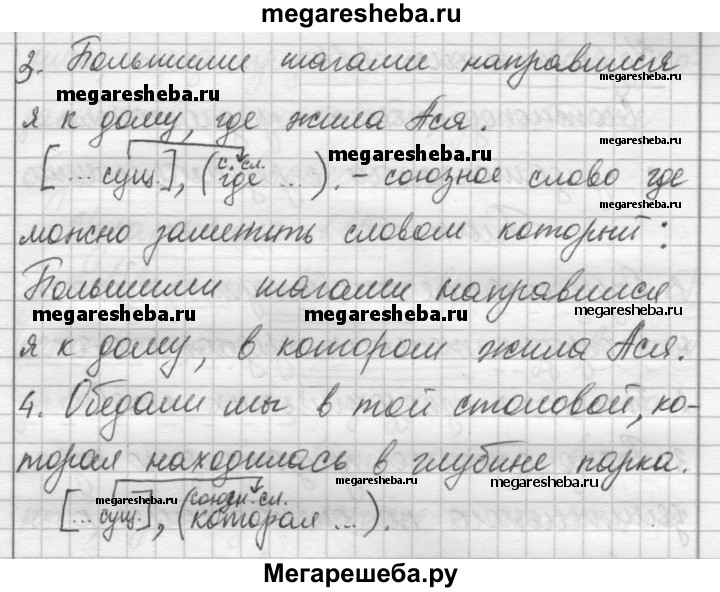 megaresheba.ru
3. Большими шагами направился
megaresheba.ru
megaresheba.ru
я к дому, где жила Ася.
megaresheba.ru
megaresheba.ru
с. сл.
[... сущ.], (где ...). - союзное слово где
megaresheba.ru
можно заметить словом который:
Большими шагами направился
megaresheba.ru megaresheba.ru megaresheba.ru
я к дому, в котором жила Ася.
4. Обедали мы в той столовой, ко-
торая находилась в глубине парка.
megaresheba.ru megaresheba.ru
megaresheba.ru союзн. сл.
[... сущ.], (которая ...).
Мегарешеба.ру